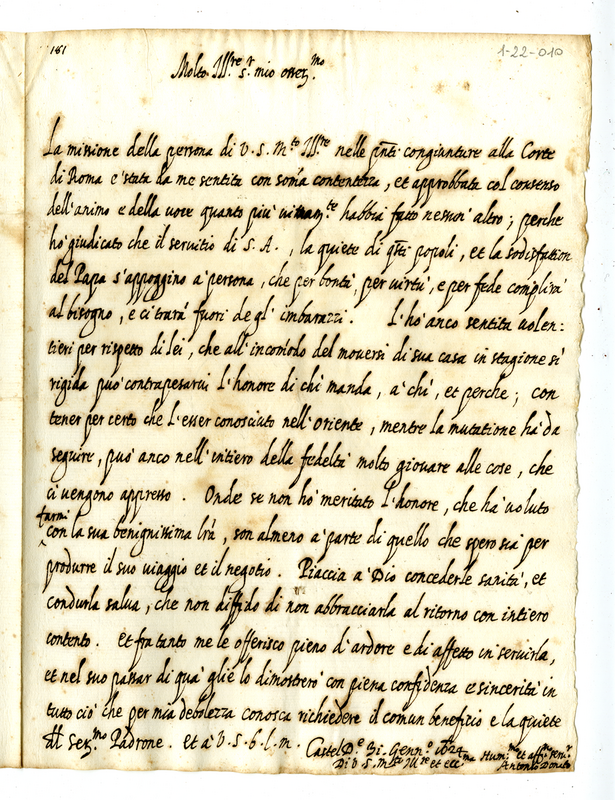 181
1-22-010
Molto Ill.re s.r mio osser.mo
La missione della persona di V. S. M.to Ill.re nelle pnti congiunture alla Corte
di Roma è stata da me sentita con som̃a contentezza, et approbbata col consenso
dell'animo e della voce quanto più vivam.te habbia fatto nessun' altro; perche
hò giudicato che il servitio di S. A., la quiete di qsti popoli, et la sodisfattion
del Papa s'appoggino à persona, che per bontà, per virtù, e per fede complirà
al bisogno, e ci trarà fuori de gl' imbarazzi. L'hò anco sentita volen:
tieri per rispetto di lei, che all' incom̃odo del moversi di sua casa in stagione sì
rigida può contrapesarvi l'honore di chi manda, à chi, et perche; con
tener per certo che l'esser conosciuto nell' oriente, mentre la mutatione hà da
seguire, può anco nell' intiero della fedeltà molto giovare alle cose, che
ci vengono appresso. Onde se non hò meritato l'honore, che hà voluto
farmi
con la sua benignissima lrã, son almeno à parte di quello che spero sia per
produrre il suo viaggio et il negotio. Piaccia à Dio concederle sanità, et
condurla salva, che non diffido di non abbracciarla al ritorno con intiero
contento. Et fra tanto me le offerisco pieno d'ardore e di affetto in servirla,
et nel suo passar di quà glie lo dimostrerò con piena confidenza e sincerità in
tutto ciò che per mia debolezza conosca richiedere il comun beneficio e la quiete
del Ser.mo Padrone. et à V. S. b. l. m. Castel D.o 31. Genn.o 1624
Di V. S. m.to Ill.re et ecc.ma Hum.mo et aff.mo ser.re
Antonio Donato